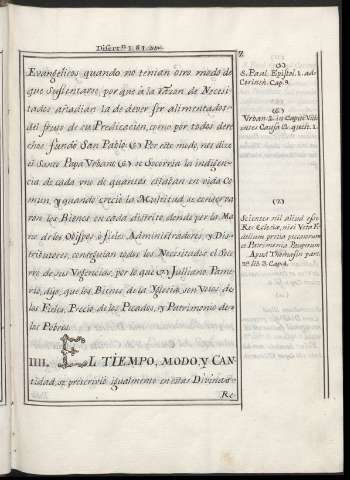 Disert.n I. §. I.
2
Evangelicos quando no tenian otro modo de
que Sustentarse, por que à la razon de Necesi-
tados añadian la de dever ser alimentados
del fruto de su Predicacion, como por todos dere-
chos fundò San Pablo (5) Por este modo, nos dice
el Santo Papa Urbano (6) se Socorria la indigen-
cia de cada uno de quantos estaban en vida Co-
mun, y quando creciò la Multitud se conserva-
ron los Bienes en cada distrito, donde por la Ma-
no de los Obispos ò fieles Administradores, y Dis-
tributores, conseguian todos los Necesitados el Soco-
rro de sus Urgencias; por lo que (7) Julliano Pome-
rio, dijo, que los Bienes de la Yglesia son Votos de
los Fieles, Precio de los Pecados, y Patrimonio de
los Pobres.
IIII. EL TIEMPO, MODO, Y CAN-
tidad, se prescriviò igualmente en estas Divinas
Re-
(5)
S. Paul. Epistol. 1. ad
Corinth. Cap. 9.
(6)
Urban. I. in Capit. Vid-
entes Causa 12. quest. 1.
(7)
Scientes nil aliud esse
Res Eclesiæ, nisi Vota Fi-
delium pretia peccatorum
et Patrimonia Pauperum
Apud Thomasin. part.
3. lib. 3. Cap. 4.